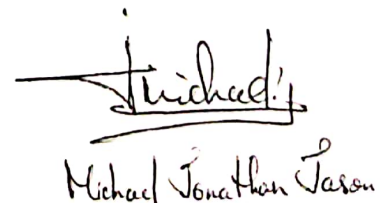 Michael
Michael Jonathan Jason